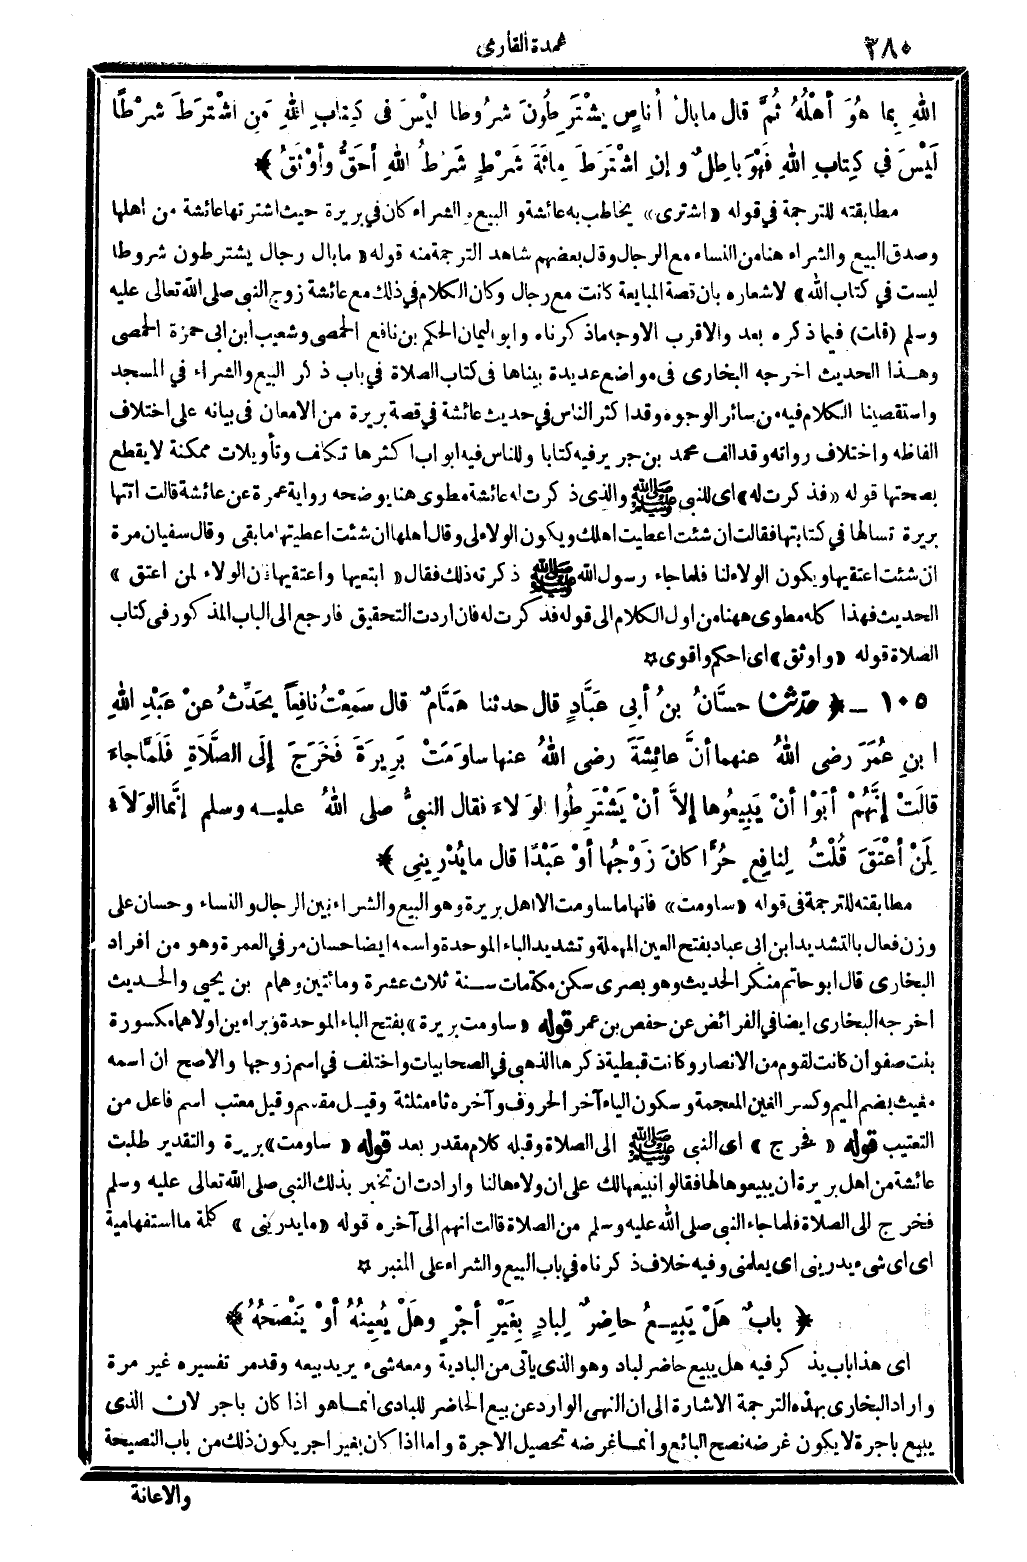 ٢٨٠
عمدة القاري
اللهِ بِما هُوَ أهْلُهُ ثُمَّ قال ما بالُ أُناسٍ يَشْتَرِطُونَ شُرُوطا لَيْسَ في كِتابِ اللهِ مَنِ اشْتَرَطَ شَرْطًا
لَيْسَ في كِتابِ اللهِ فَهْوَ باطِلٌ وإنِ اشْتَرَطَ مِائَةَ شَرْطٍ شَرْطُ اللهِ أحَقُّ وأوْثَقُ ﴾
مطابقته للترجمة في قوله «اشترى» يخاطب به عائشة والبيع والشراء كان في بريرة حيث اشترتها عائشة من أهلها
وصدق البيع والشراء هنا من النساء مع الرجال وقال بعضهم شاهد الترجمة منه قوله «ما بال رجال يشترطون شروطا
ليست في كتاب الله» لاشعاره بان قصة المبايعة كانت مع رجال وكان الكلام في ذلك مع عائشة زوج النبي صلى الله تعالى عليه
وسلم (قلت) فيما ذكره بعد والاقرب الاوجه ما ذكرناه وابو اليمان الحكم بن نافع الحمصي وشعيب ابن ابي حمزة الحمصي
وهذا الحديث اخرجه البخارى في مواضع عديدة بيناها في كتاب الصلاة في باب ذكر البيع والشراء في المسجد
واستقصينا الكلام فيه من سائر الوجوه وقد اكثر الناس في حديث عائشة في قصة بريرة من الامعان في بيانه على اختلاف
الفاظه واختلاف رواته وقد الف محمد بن جرير فيه كتابا وللناس فيه ابواب اكثرها تكلف وتأويلات ممكنة لا يقطع
بصحتها قوله «فذكرت له» اى للنبي ﷺ والذى ذكرت له عائشة مطوى هنا يوضحه رواية عمرة عن عائشة قالت اتتها
بريرة تسألها في كتابتها فقالت ان شئت اعطيت اهلك ويكون الولاء لى وقال أهلها ان شئت اعطيتها ما بقى وقال سفيان مرة
ان شئت اعتقيها ويكون الولاء لنا فلما جاء رسول الله ﷺ ذكرته ذلك فقال «ابتعيها واعتقيها فان الولاء لمن اعتق»
الحديث فهذا كله مطوى ههنا من اول الكلام الى قوله فذكرت له فان اردت التحقيق فارجع الى الباب المذكور في كتاب
الصلاة قوله «واوثق» اى احكم واقوى ☆
١٠٥ ـ ﴿ حدثنا حسَّانُ بنُ أبي عَبَّادٍ قال حدثنا هَمَّامٌ قال سَمِعْتُ نافِعاً يُحَدِّثُ عنْ عَبْدِ اللهِ
ابنِ عُمَرَ رضى اللهُ عنهما أنَّ عائِشَةَ رضى اللهُ عنها ساوَمَتْ بَرِيرَةَ فَخَرَجَ إلَى الصَّلاَةِ فَلَمَّا جاءَ
قالَتْ إنَّهُمْ أبَوْا أنْ يَبِيعُوها إلاَّ أنْ يَشْتَرِطُوا الوَلاءَ فقال النبيُّ صلى اللهُ عليه وسلم إنَّما الوَلاَءُ
لِمَنْ أعْتَقَ قُلْتُ لِنافِعٍ حُرًّا كانَ زَوْجُها أوْ عَبْدًا قال ما يُدْرِينِي ﴾
مطابقته للترجمة في قوله «ساومت» فانها ما ساومت الا اهل بريرة وهو البيع والشراء بين الرجال والنساء وحسان على
وزن فعال بالتشديد ابن ابي عباد بفتح العين المهملة وتشديد الباء الموحدة واسمه ايضا حسان مر في العمرة وهو من أفراد
البخارى قال ابو حاتم منكر الحديث وهو بصرى سكن مكة مات سنة ثلاث عشرة ومائتين وهمام بن يحيي والحديث
اخرجه البخارى ايضا في الفرائض عن حفص بن عمر قوله «ساومت بريرة» بفتح الباء الموحدة وبراءين اولاهما مكسورة
بنت صفوان كانت لقوم من الانصار وكانت قبطية ذكرها الذهبي في الصحابيات واختلف في اسم زوجها والاصح ان اسمه
مغيث بضم الميم وكسر الغين المعجمة وسكون الياء آخر الحروف وآخره ثاء مثلثة وقيل مقسم وقيل معتب اسم فاعل من
التعتيب قوله «فخرج» اى النبي ﷺ الى الصلاة وقبله كلام مقدر بعد قوله «ساومت» بريرة والتقدير طلبت
عائشة من اهل بريرة أن يبيعوها لها فقالوا نبيعها لك على ان ولاءها لنا وارادت ان تخبر بذلك النبي صلى الله تعالى عليه وسلم
فخرج الى الصلاة فلما جاء النبي صلى الله عليه وسلم من الصلاة قالت انهم الى آخره قوله «ما يدريني» كلمة ما استفهامية
اى اى شيء يدريني اى يعلمني وفيه خلاف ذكرناه في باب البيع والشراء على المنبر ☆
﴿ بابٌ هَلْ يَبِيعُ حاضِرٌ لِبادٍ بِغَيْرِ أجْرٍ وهَلْ يُعِينُهُ أوْ يَنْصَحُهُ ﴾
اى هذا باب يذكر فيه هل يبيع حاضر لباد وهو الذى يأتى من البادية ومعه شيء يريد بيعه وقد مر تفسيره غير مرة
واراد البخارى بهذه الترجمة الاشارة الى ان النهى الوارد عن بيع الحاضر للبادى انما هو اذا كان باجر لان الذى
يبيع باجرة لا يكون غرضه نصح البائع وانما غرضه تحصيل الاجرة واما اذا كان بغير اجر يكون ذلك من باب النصيحة
والاعانة